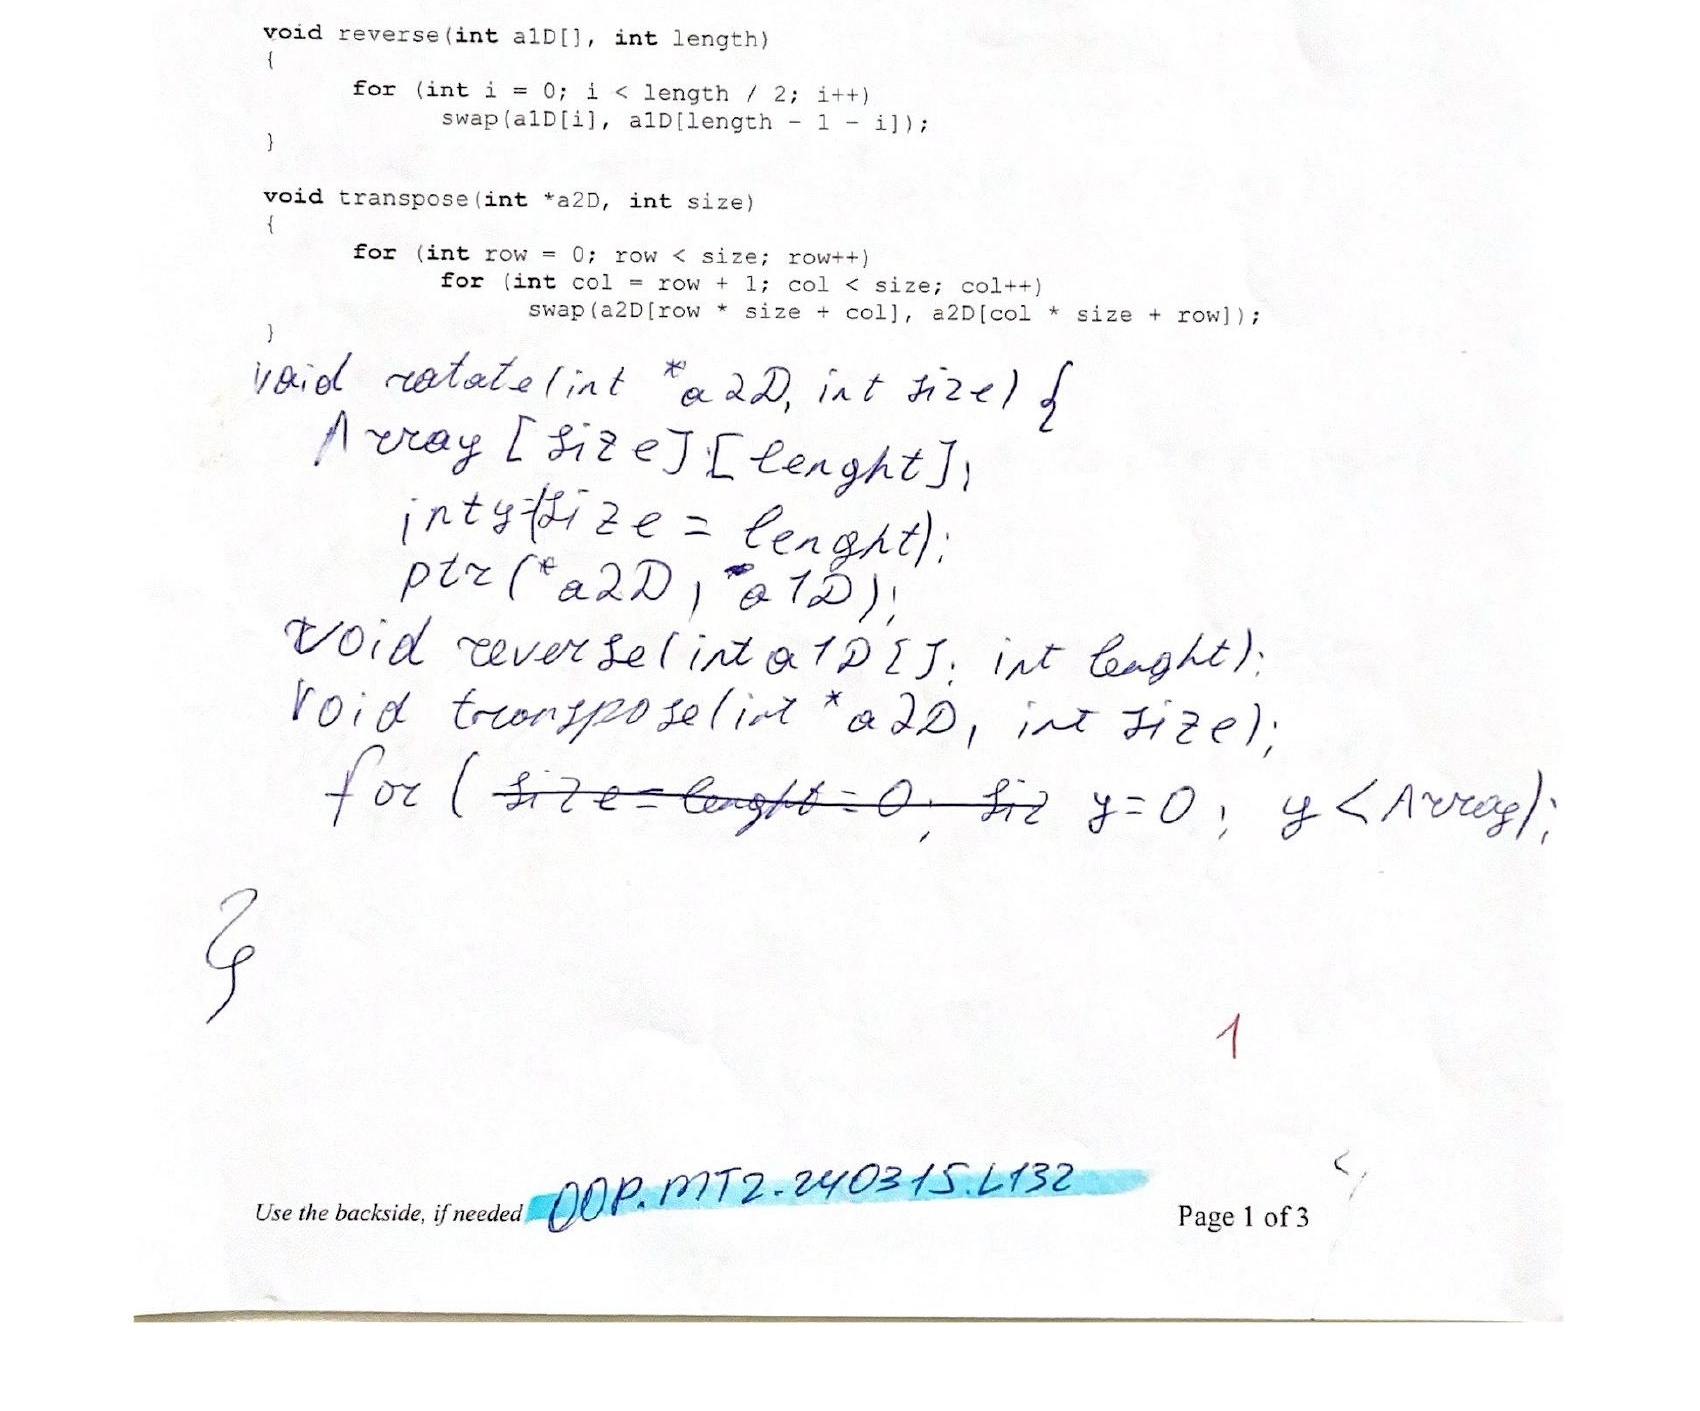 void reverse(int a1D[], int length)
{
for (int i = 0; i < length / 2; i++)
swap(a1D[i], a1D[length - 1 - i]);
}
void transpose(int *a2D, int size)
{
for (int row = 0; row < size; row++)
for (int col = row + 1; col < size; col++)
swap(a2D[row * size + col], a2D[col * size + row]);
}
void rotate(int *a2D, int size) {
Array [size][lenght];
int y size = lenght);
ptr(*a2D, *a1D);
void reverse(int a1D[]; int lenght);
void transpose(int *a2D, int size);
for ( size = lenght = 0; siz y=0; y < Array);
}
1
Use the backside, if needed OOP.MT2.240315.L132 Page 1 of 3